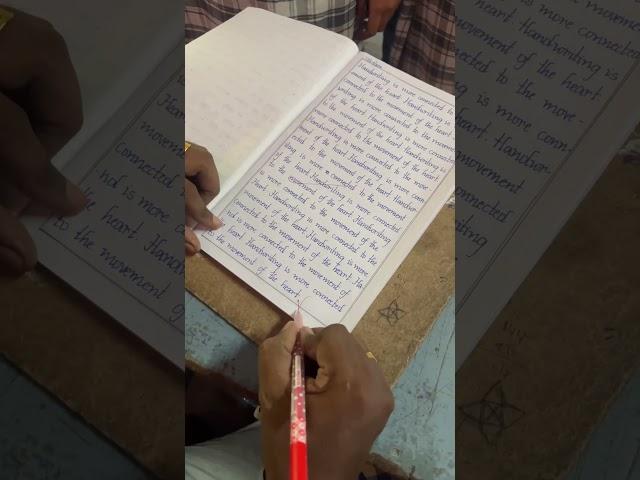 Handwriting is more connected to
ment of the heart. Handwriting is
connected to the movement of the heart.
writing is more connected to the movement
of the heart. Handwriting is more connected
to the movement of the heart. Handwriting is
more connected to the movement of the heart.
Handwriting is more connected to the move-
ment of the heart. Handwriting is more conn
ected to the movement of the heart. Handwr
iting is more connected to the movement
of the heart. Handwriting is more connected
to the movement of the heart. Handwriting
is more connected to the movement of the
heart. Handwriting is more connected to the
movement of the heart. Handwriting is more
connected to the movement of the heart. Ha
nd is more connected to the movement of
the heart. Handwriting is more connected
to the movement of the heart.